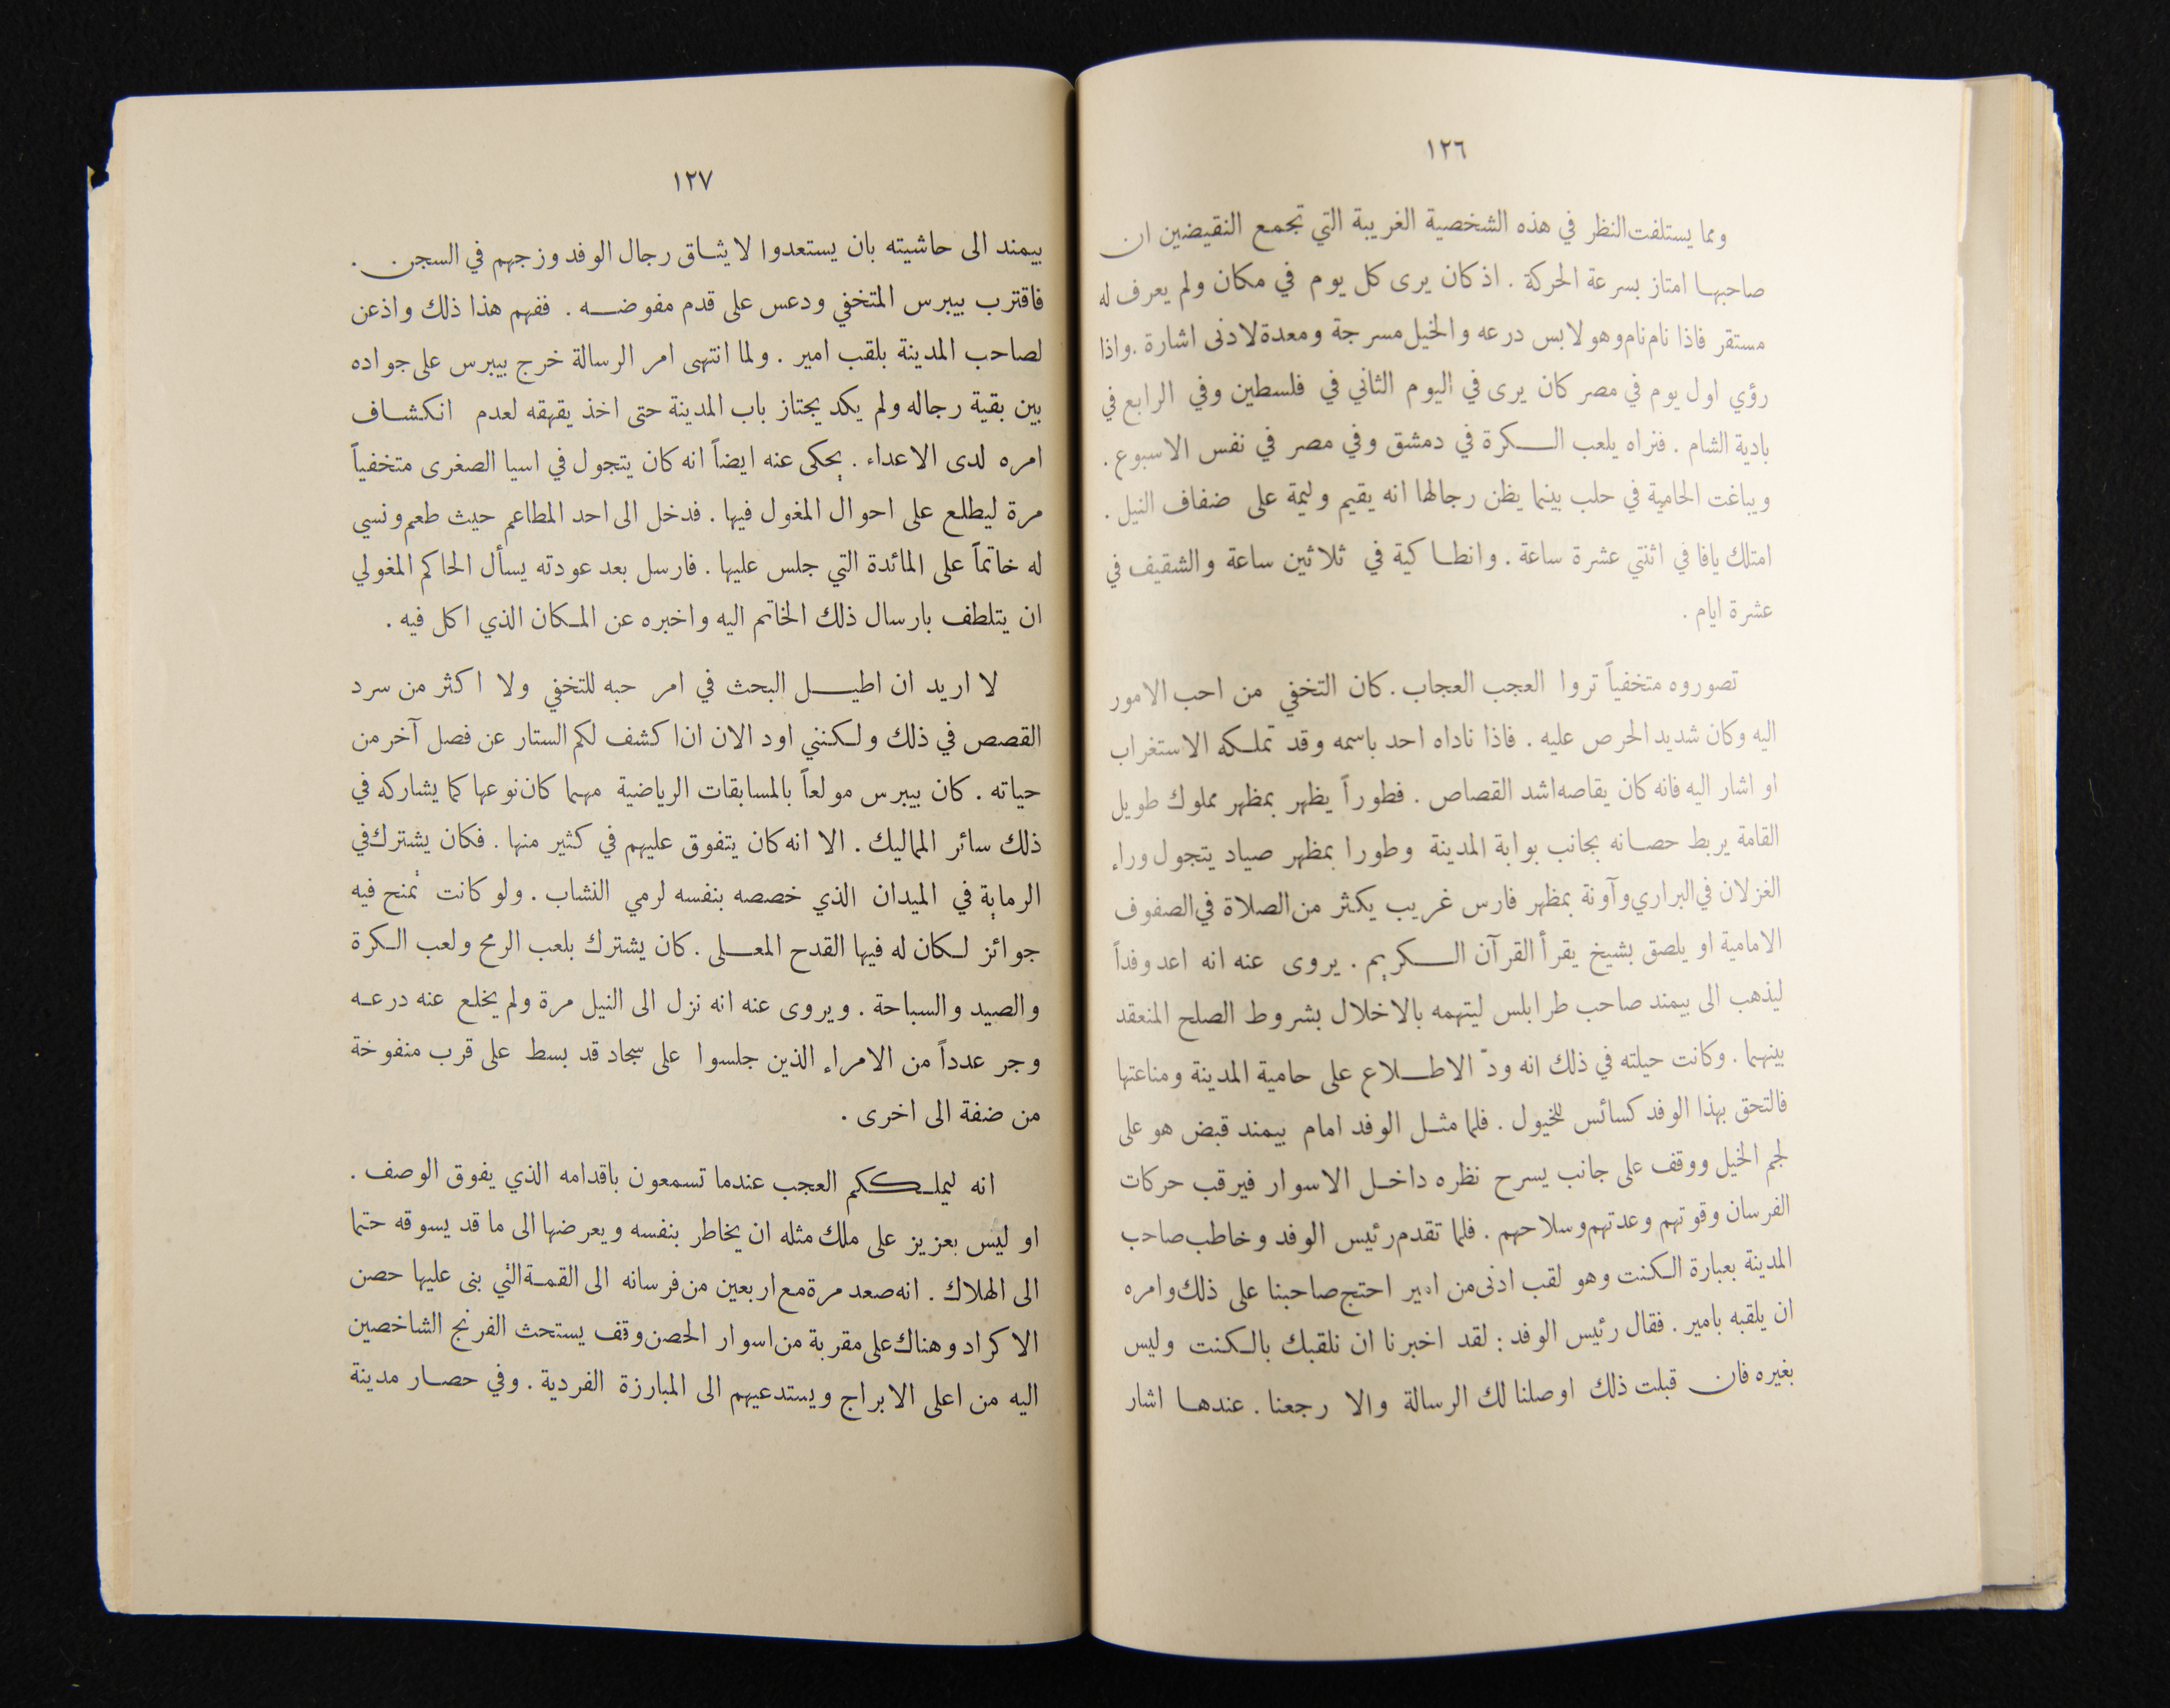 ١٢٦
ومما يستلفت النظر في هذه الشخصية الغريبة التي تجمع النقيضين ان
صاحبها امتاز بسرعة الحركة . اذ كان يرى كل يوم في مكان ولم يعرف له
مستقر فاذا نام نام وهو لابس درعه والخيل مسرجة ومعدة لادنى اشارة . واذا
رؤي اول يوم في مصر كان يرى في اليوم الثاني في فلسطين وفي الرابع في
بادية الشام . فنراه يلعب الكرة في دمشق وفي مصر في نفس الاسبوع .
ويباغت الحامية في حلب بينما يظن رجالها انه يقيم وليمة على ضفاف النيل .
امتلك يافا في اثنتي عشرة ساعة . وانطاكية في ثلاثين ساعة والشقيف في
عشرة ايام .
تصوروه متخفياً تروا العجب العجاب . كان التخفي من احب الامور
اليه وكان شديد الحرص عليه . فاذا ناداه احد باسمه وقد تملكه الاستغراب
او اشار اليه فانه كان يقاصه اشد القصاص . فطوراً يظهر بمظهر مملوك طويل
القامة يربط حصانه بجانب بوابة المدينة وطورا بمظهر صياد يتجول وراء
الغزلان في البراري وآونة بمظهر فارس غريب يكثر من الصلاة في الصفوف
الامامية او يلصق بشيخ يقرأ القرآن الكريم . يروى عنه انه اعد وفداً
ليذهب الى بيمند صاحب طرابلس ليتهمه بالاخلال بشروط الصلح المنعقد
بينهما . وكانت حيلته في ذلك انه ودّ الاطلاع على حامية المدينة ومناعتها
فالتحق بهذا الوفد كسائس للخيول . فلما مثل الوفد امام بيمند قبض هو على
لجم الخيل ووقف على جانب يسرح نظره داخل الاسوار فيرقب حركات
الفرسان وقوتهم وعدتهم وسلاحهم . فلما تقدم رئيس الوفد وخاطب صاحب
المدينة بعبارة الكنت وهو لقب ادنى من امير احتج صاحبنا على ذلك وامره
ان يلقبه بامير . فقال رئيس الوفد : لقد اخبرنا ان نلقبك بالكنت وليس
بغيره فان قبلت ذلك اوصلنا لك الرسالة والا رجعنا . عندها اشار
١٢٧
بيمند الى حاشيته بان يستعدوا لايثاق رجال الوفد وزجهم في السجن .
فاقترب بيبرس المتخفي ودعس على قدم مفوضه . ففهم هذا ذلك واذعن
لصاحب المدينة بلقب امير . ولما انتهى امر الرسالة خرج بيبرس على جواده
بين بقية رجاله ولم يكد يجتاز باب المدينة حتى اخذ يقهقه لعدم انكشاف
امره لدى الاعداء . يحكى عنه ايضاً انه كان يتجول في اسيا الصغرى متخفياً
مرة ليطلع على احوال المغول فيها . فدخل الى احد المطاعم حيث طعم ونسي
له خاتماً على المائدة التي جلس عليها . فارسل بعد عودته يسأل الحاكم المغولي
ان يتلطف بارسال ذلك الخاتم اليه واخبره عن المكان الذي اكل فيه .
لا اريد ان اطيل البحث في امر حبه للتخفي ولا اكثر من سرد
القصص في ذلك ولكنني اود الان ان اكشف لكم الستار عن فصل آخر من
حياته . كان بيبرس مولعاً بالمسابقات الرياضية مهما كان نوعها كما يشاركه في
ذلك سائر المماليك . الا انه كان يتفوق عليهم في كثير منها . فكان يشترك في
الرماية في الميدان الذي خصصه بنفسه لرمي النشاب . ولو كانت تُمنح فيه
جوائز لكان له فيها القدح المعلى . كان يشترك بلعب الرمح ولعب الكرة
والصيد والسباحة . ويروى عنه انه نزل الى النيل مرة ولم يخلع عنه درعه
وجر عدداً من الامراء الذين جلسوا على سجاد قد بسط على قرب منفوخة
من ضفة الى اخرى .
انه ليملككم العجب عندما تسمعون باقدامه الذي يفوق الوصف .
او ليس بعزيز على ملك مثله ان يخاطر بنفسه ويعرضها الى ما قد يسوقه حتما
الى الهلاك . انه صعد مرة مع اربعين من فرسانه الى القمة التي بنى عليها حصن
الاكراد وهناك على مقربة من اسوار الحصن وقف يستحث الفرنج الشاخصين
اليه من اعلى الابراج ويستدعيهم الى المبارزة الفردية . وفي حصار مدينة